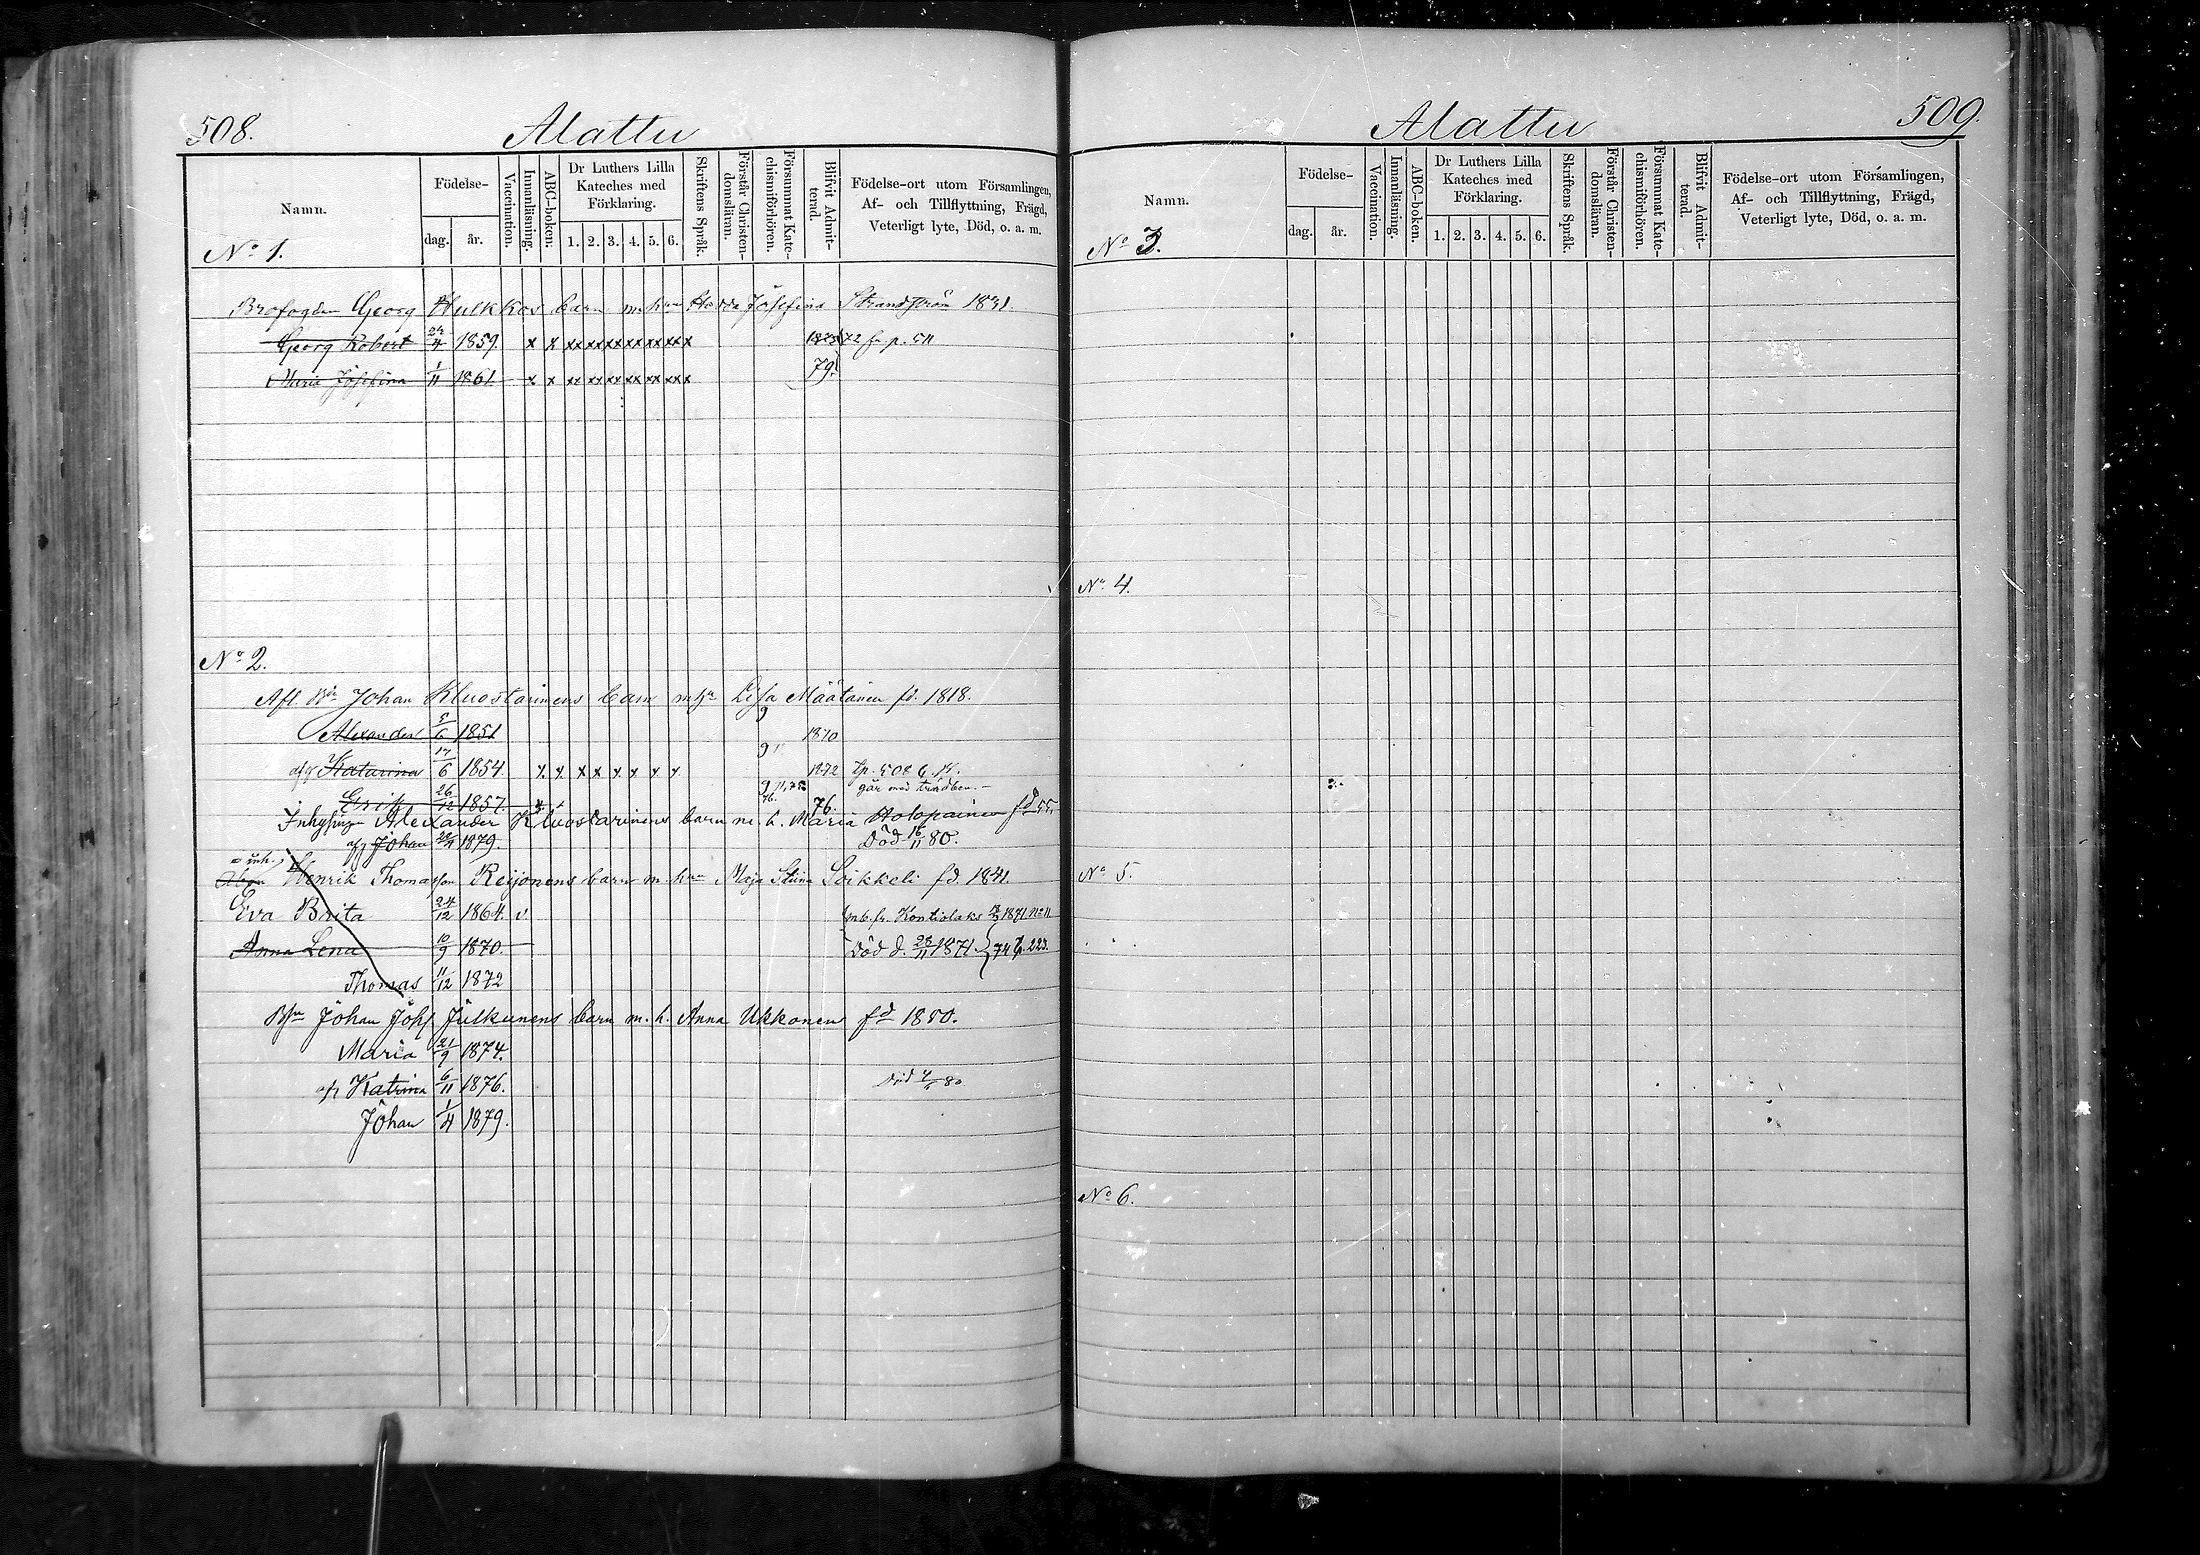 508.
Alattu
Namn.
Födelse-
dag.
år.
Vaccination.
Innanläsning.
ABC-boken.
Dr Luthers Lilla
Kateches med
Förklaring.
1. 2. 3. 4. 5. 6.
Skriftens Språk.
Förstår Christen-
domsläran.
Försummat Kate-
chismiförhören.
Blifvit Admit-
terad.
Födelse-ort utom Församlingen,
Af- och Tillflyttning, Frägd,
Veterligt lyte, Död, o. a. m.
No 1.
Brofogden Georg Hulkkos barn m. hun Hedda Josefina Strandström 1831.
Georg Robert 24/4 1859. x x xx xx xx xx xx xx x 72 fr p. 511
Maria Josefina 1/11 1861 x x xx xx xx xx xx xx x 79.
No 2.
Afl. Johan Kluostarinens barn m hu Lisa Määtänen fd. 1818.
Alexander 5/6 1851 9 1870
Katarina 17/6 1854. x x x x x x x x 1872
går med träben.
Erik 26/12 1857. 76.
Inhysingen Alexander Kluostarinens barn m. h. Maria Holopainen fd 55.
Johan 1879. Död 16/11 80.
inh.
Henrik Thomasson Reijonens barn m hun Maja Stiina Soikkeli fd. 1841.
Eva Brita 24/12 1864. v mb. fr. Kontiolaks 1871 No 11
Anna Lena 10/9 1870. Död d. 1871 } 74 p. 223.
Thomas 11/12 1872
Johan Johs Julkunens barn m. h. Anna Ukkonen fd 1850.
Maria 21/9 1874.
Katrina 6/11 1876. Död 80
Johan 1/4 1879.
Alattu
509.
Namn.
Födelse-
dag.
år.
Vaccination.
Innanläsning.
ABC-boken.
Dr Luthers Lilla
Kateches med
Förklaring.
1. 2. 3. 4. 5. 6.
Skriftens Språk.
Förstår Christen-
domsläran.
Försummat Kate-
chismiförhören.
Blifvit Admit-
terad.
Födelse-ort utom Församlingen,
Af- och Tillflyttning, Frägd,
Veterligt lyte, Död, o. a. m.
No 3.
No 4.
No 5.
No 6.